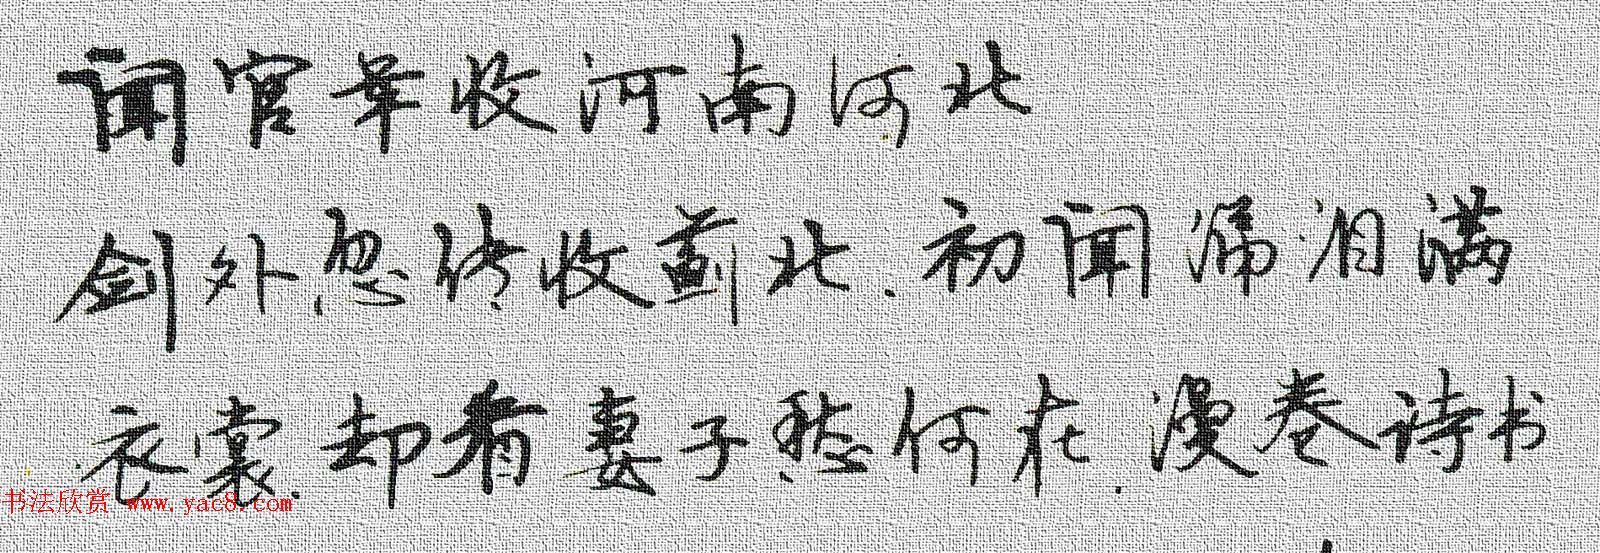 闻官军收河南河北
剑外忽传收蓟北.初闻涕泪满
衣裳.却看妻子愁何在.漫卷诗书
书法欣赏 www.yac8.com